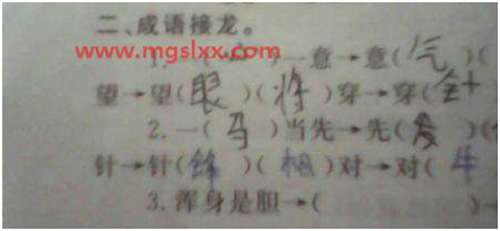 二、成语接龙。
www.mgslxx.com
1. 一意→意(气)(
望→望(眼)(将)穿→穿(针
2. 一(马)当先→先(发)(
针→针(锋)(相)对→对(牛
3. 浑身是胆→( )